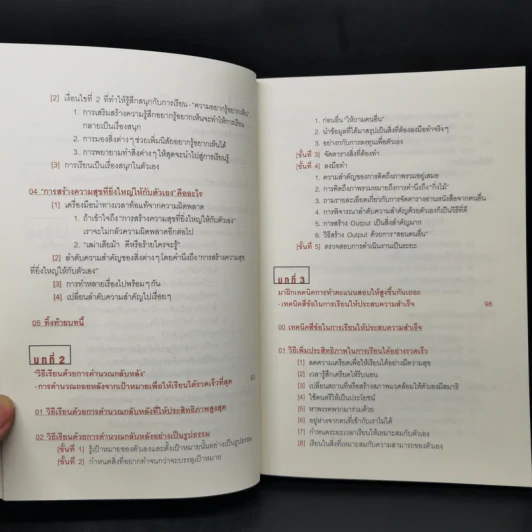 [2] เงื่อนไขที่ 2 ที่ทำให้รู้สึกสนุกกับการเรียน -"ความอยากรู้อยากเห็น"
1. การเสริมสร้างความรู้สึกอยากรู้อยากเห็นจะทำให้การเรียน
กลายเป็นเรื่องสนุก
2. การมองสิ่งต่างๆ ช่วยเพิ่มนิสัยอยากรู้อยากเห็นได้
3. การพยายามทำสิ่งต่างๆ ให้สุดจะนำไปสู่การเรียนรู้
[3] การเรียนเป็นเรื่องสนุกในตัวเอง
04 "การสร้างความสุขที่ยิ่งใหญ่ให้กับตัวเอง" คืออะไร
[1] เครื่องมือนำทางเวลาท้อแท้จากความผิดพลาด
1. ถ้าเข้าใจถึง "การสร้างความสุขที่ยิ่งใหญ่ให้กับตัวเอง"
เราจะไม่กลัวความผิดพลาดอีกต่อไป
2. "เฒ่าเสียม้า ดีหรือร้ายใครจะรู้"
[2] ลำดับความสำคัญของสิ่งต่างๆ โดยคำนึงถึง "การสร้างความสุข
ที่ยิ่งใหญ่ให้กับตัวเอง"
[3] การทำหลายเรื่องไปพร้อมๆ กัน
[4] เปลี่ยนลำดับความสำคัญไปเรื่อยๆ
05 ทิ้งท้ายบทนี้
บทที่ 2
"วิธีเรียนด้วยการคำนวณกลับหลัง"
-การคำนวณถอยหลังจากเป้าหมายเพื่อให้เรียนได้รวดเร็วที่สุด
01 วิธีเรียนด้วยการคำนวณกลับหลังที่ให้ประสิทธิภาพสูงสุด
02 วิธีเรียนด้วยการคำนวณกลับหลังอย่างเป็นรูปธรรม
[ขั้นที่ 1] รู้เป้าหมายของตัวเองและตั้งเป้าหมายนั้นอย่างเป็นรูปธรรม
[ขั้นที่ 2] กำหนดสิ่งที่อยากทำจนกว่าจะบรรลุเป้าหมาย
1. ก่อนอื่น "ให้ถามคนอื่น"
2. นำข้อมูลที่ได้มาสรุปเป็นสิ่งที่ต้องลงมือทำจริงๆ
3. อย่างกกับการลงทุนเพื่อตัวเอง
[ขั้นที่ 3] จัดตารางสิ่งที่ต้องทำ
[ขั้นที่ 4] ลงมือทำ
1. ความสำคัญของการคิดถึงภาพรวมอยู่เสมอ
2. การคิดถึงภาพรวมหมายถึงการคำนึงถึง "กิ่งไม้"
3. ถามรายละเอียดเกี่ยวกับการจัดตารางอ่านหนังสือจากคนอื่น
4. การพิจารณาลำดับความสำคัญด้วยตัวเองก็เป็นวิธีที่ดี
5. การสร้าง Output เป็นสิ่งสำคัญมาก
6. วิธีสร้าง Output ด้วยการ "สอนคนอื่น"
[ขั้นที่ 5] ตรวจสอบการดำเนินงานเป็นระยะ
บทที่ 3
มาฝึกเทคนิคการทำคะแนนสอบให้สูงขึ้นกันเถอะ
-เทคนิคสี่ข้อในการเรียนให้ประสบความสำเร็จ 98
00 เทคนิคสี่ข้อในการเรียนให้ประสบความสำเร็จ
01 วิธีเพิ่มประสิทธิภาพในการเรียนได้อย่างรวดเร็ว
[1] ลดความเครียดเพื่อให้เรียนได้อย่างมีความสุข
[2] เวลารู้สึกเครียดให้รีบนอน
[3] เปลี่ยนสถานที่หรือสร้างสภาพแวดล้อมให้ตัวเองมีสมาธิ
[4] ใช้ดนตรีให้เป็นประโยชน์
[5] หาพรรคพวกมาร่วมด้วย
[6] อยู่ห่างจากคนที่เข้ากับเราไม่ได้
[7] กำหนดระยะเวลาเรียนให้เหมาะสมกับตัวเอง
[8] เรียนในสิ่งที่เหมาะสมกับความสามารถของตัวเอง